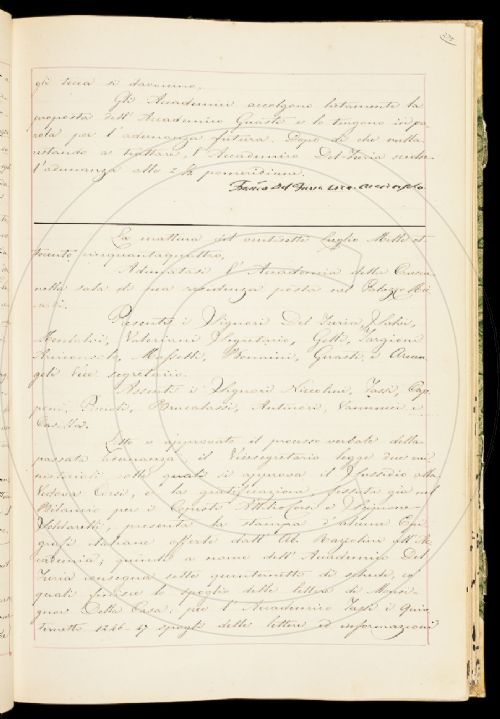 gli tocca si davranno.
Gli Accademici accolgono lietamente la
proposta dell'Accademico Guasti e lo tengono in pa-
rola per l'adunanza futura. Dopo di che nulla
restando a trattare, l'Accademico Del Furia scioglie
l'adunanza alle 2 1/2 pomeridiane.
Franco Del Furia vice-arciconsolo
La mattina del ventisette Luglio Mille ot-
tocento cinquantaquattro,
Adunatasi l'Accademia della Crusca
nella sala di sua residenza posta nel Palazzo Ric-
cardi.
Presenti i Signori Del Furia,
Arcangeli, Valeriani Segretario, Gotti, Targioni
Arciconsolo, Masselli, Bonnini, Guasti e Arcan-
geli Vice segretario.
Assenti i Signori Niccolini, Tassi, Cap-
poni, Brucalassi, Antinori, Vannucci e
Letto e approvato il processo verbale della
passata Tornanza il Vicesegretario legge due mi-
nisteriali colle quali si approva il sussidio alla
Vedova Casi, e la gratificazione fissata già nel
Bilancio per i
presenta la stampa d'alcune Epi-
grafi italiane offerte dall'Ab. Razzolini all'Ac-
cademia; quindi a nome dell'Accademico Del
Furia consegna sette quinternetti di schede, co'
quali finisce lo spoglio delle lettere di Monsi-
gnor Della Casa: per l'Accademico Tassi i Quin-
ternetti 1246-47 spogli delle lettere ed informazioni